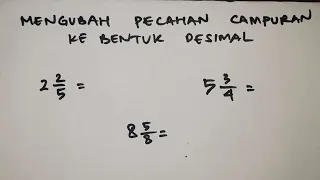 MENGUBAH PECAHAN CAMPURAN
KE BENTUK DESIMAL
2 2/5 =
5 3/4 =
8 5/8 =